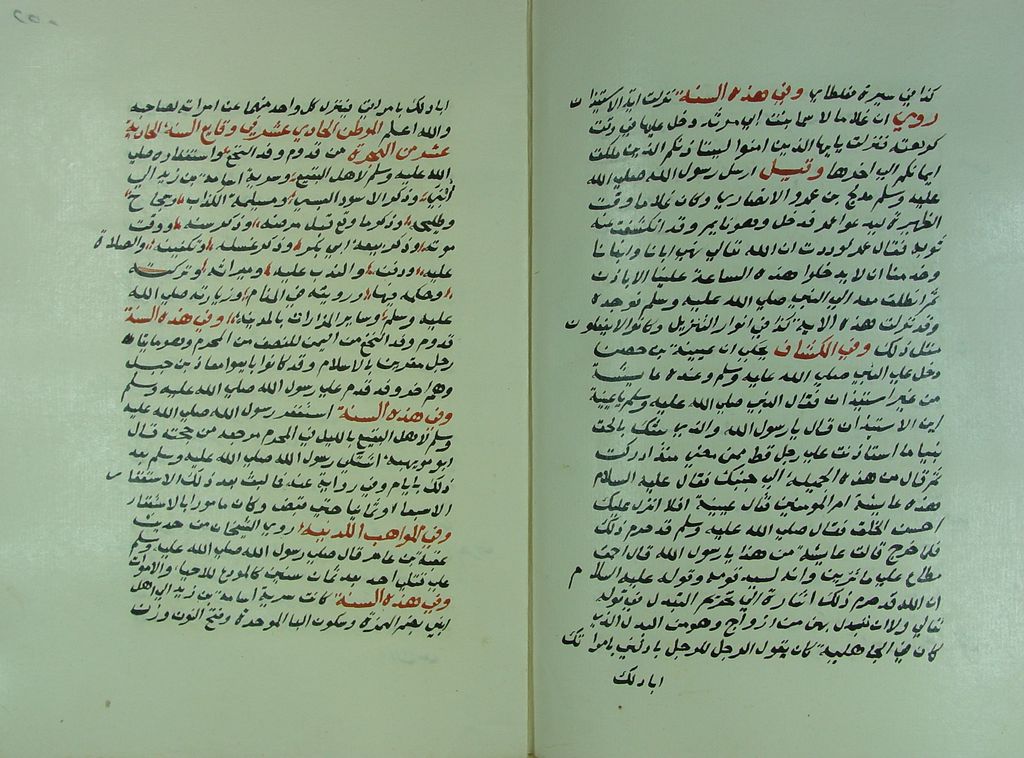 كذا في سيرة مغلطاي وفي هذه السنة نزلت اية الاستيذان
روي ان غلاما لاسما بنت ابي مرثد دخل عليها في وقت
كرهته فنزلت يايها الذين امنوا ليستاذنكم الذين ملكت
ايمانكم الى اخرها وقيل ارسل رسول الله صلى الله
عليه وسلم مدلج بن عمرو الانصاري وكان غلاما وقت
الظهيرة ليدعوا عمر فدخل وهو نايم وقد انكشف عنه
ثوبه فقال عمر لوددت ان الله تعالى نهى ابانا وابنانا
وخدمنا ان لا يدخلوا هذه الساعة علينا الا باذن
ثم انطلق معه الى النبي صلى الله عليه وسلم فوجده
وقد نزلت هذه الاية كذا في انوار التنزيل وكانوا لا يفعلون
مثل ذلك وفي الكشاف يحكى ان عيينة بن حصن
دخل على النبي صلى الله عليه وسلم وعنده عايشة
من غير استيذان فقال النبي صلى الله عليه وسلم يا عيينة
اين الاستيذان قال يا رسول الله والذي بعثك بالحق
نبيا ما استاذنت على رجل قط ممن مضى منذ ادركت
ثم قال من هذه الجميلة الى جنبك فقال عليه السلام
هذه عايشة ام المومنين قال عيينة افلا انزل عليك
احسن الخلق فقال صلى الله عليه وسلم قد حرم ذلك
فلما خرج قالت عايشة من هذا يا رسول الله قال احمق
مطاع على ما ترين وانه لسيد قومه وقوله عليه السلام
ان الله قد حرم ذلك اشارة الى تحريم التبدل في قوله
تعالى ولا ان تبدل بهن من ازواج وهو من البدل الذي
كان في الجاهلية كان يقول الرجل للرجل بادلني بامراتك
ابادلك
ابادلك بامراتي فينزل كل واحد منهما عن امراته لصاحبه
والله اعلم الموطن الحادي عشر في وقايع السنة الحادية
عشر من الهجرة من قدوم وفد النخع واستغفاره صلى
الله عليه وسلم لاهل البقيع وسرية اسامة بن زيد الى
ابنى وذكر الاسود العنسي ومسيلمة الكذاب وسجاح
وطليحة وذكر ما وقع قبل مرضه وذكر مرضه ووقت
موته وذكر بيعة ابي بكر وذكر غسله وتكفينه والصلاة
عليه ودفنه والندب عليه وميراثه وتركته
وحكمه فيها ورويته في المنام وزيارته صلى الله
عليه وسلم وساير المزارات بالمدينة وفي هذه السنة
قدوم وفد النخع من اليمن للنصف من المحرم وهم مايتا
رجل مقرين بالاسلام وقد كانوا بايعوا معاذ بن جبل
وهم اخر وفد قدم على رسول الله صلى الله عليه وسلم
وفي هذه السنة استغفر رسول الله صلى الله عليه
وسلم لاهل البقيع بالليل في المحرم مرجعه من حجته قال
ابو مويهبة اشتكى رسول الله صلى الله عليه وسلم بعد
ذلك بايام وفي رواية عنه فما لبث بعد ذلك الاستغفار
الا سبعا او ثمانيا حتى قبض وكان مامورا بالاستغفار
وفي المواهب اللدنية روى الشيخان من حديث
عقبة بن عامر قال صلى رسول الله صلى الله عليه وسلم
على قتلى احد بعد ثمان سنين كالمودع للاحيا والاموات
وفي هذه السنة كانت سرية اسامة بن زيد الى اهل
ابنى بضم الهمزة وسكون البا الموحدة وفتح النون وزن